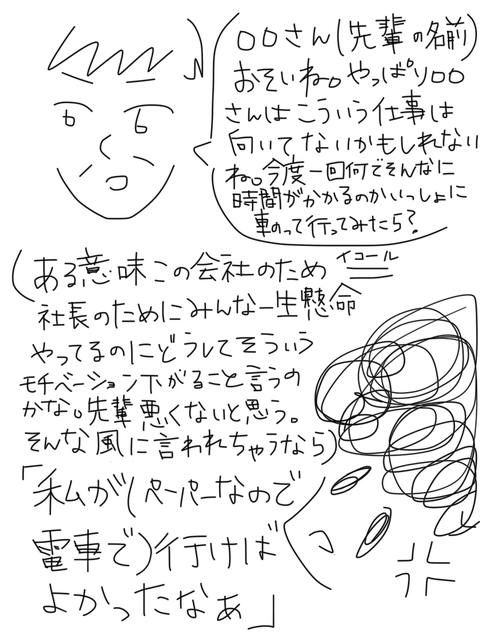 ○○さん(先輩の名前)
おそいね。やっぱり○○
さんはこういう仕事は
向いてないかもしれない
ね。今度一回何でそんなに
時間がかかるのかいっしょに
車のって行ってみたら?
(ある意味この会社のため
イコール
社長のためにみんな一生懸命
やってるのにどうしてそういう
モチベーション下がること言うの
かな。先輩悪くないと思う。
そんな風に言われちゃうなら)
「私が(ペーパーなので
電車で)行けば
よかったなぁ」